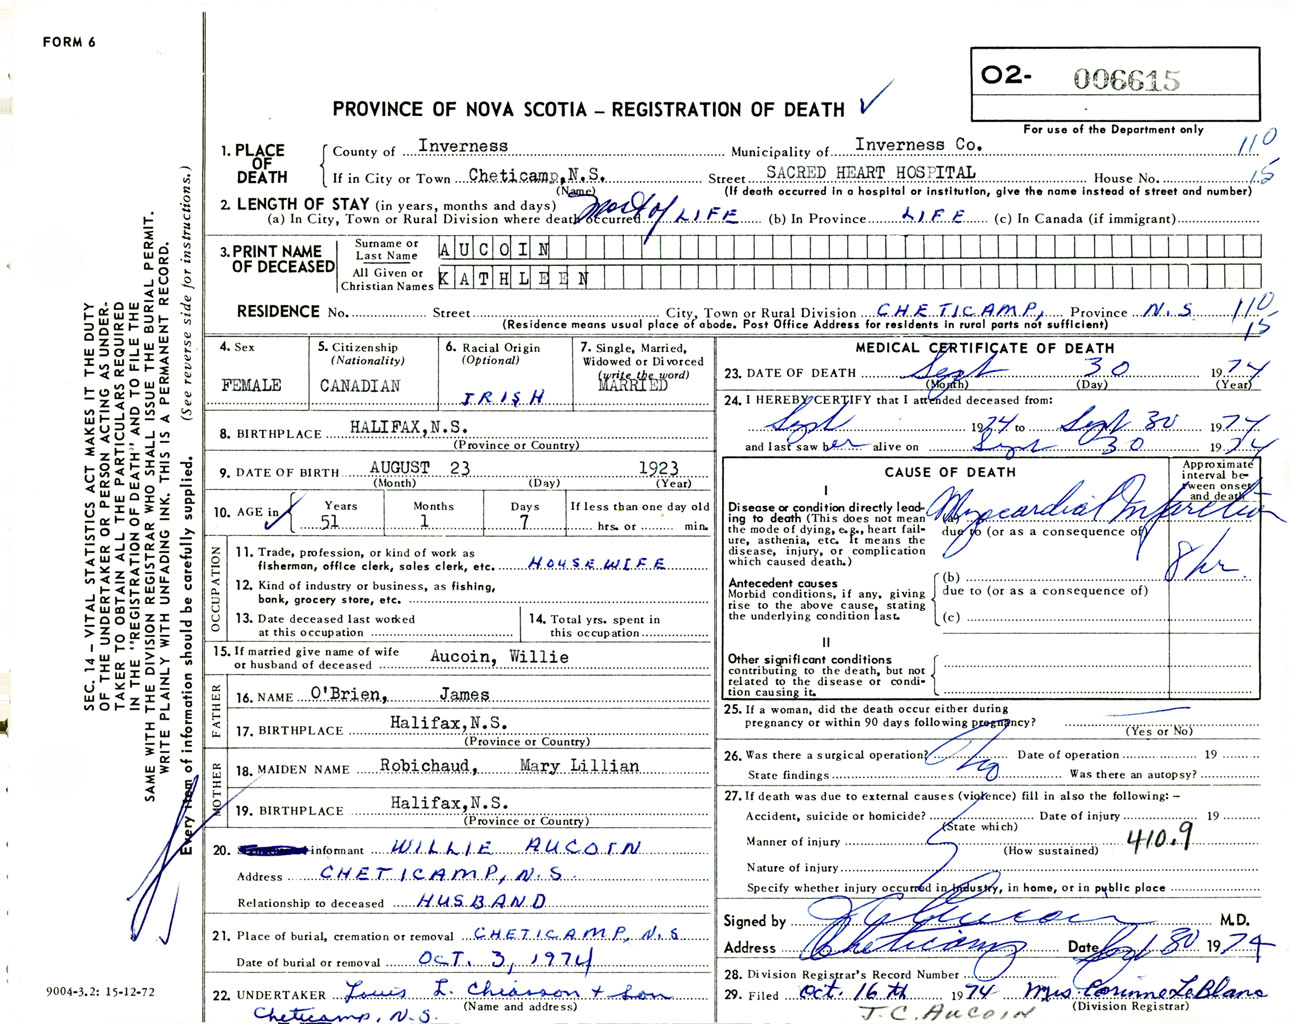 FORM 6
O2- 006615
PROVINCE OF NOVA SCOTIA – REGISTRATION OF DEATH
For use of the Department only
1. PLACE OF DEATH
County of Inverness Municipality of Inverness Co. 110
If in City or Town Cheticamp, N.S. Street SACRED HEART HOSPITAL House No. 15
(Name) (If death occurred in a hospital or institution, give the name instead of street and number)
2. LENGTH OF STAY (in years, months and days)
(a) In City, Town or Rural Division where death occurred most of LIFE (b) In Province LIFE (c) In Canada (if immigrant)
3. PRINT NAME OF DECEASED
Surname or Last Name AUCOIN
All Given or Christian Names KATHLEEN
RESIDENCE No. Street City, Town or Rural Division CHETICAMP, Province N.S. 110
(Residence means usual place of abode. Post Office Address for residents in rural parts not sufficient) 15
4. Sex
FEMALE
5. Citizenship
(Nationality)
CANADIAN
6. Racial Origin
(Optional)
IRISH
7. Single, Married,
Widowed or Divorced
(write the word)
MARRIED
8. BIRTHPLACE HALIFAX, N.S.
(Province or Country)
9. DATE OF BIRTH AUGUST 23 1923
(Month) (Day) (Year)
10. AGE in
Years Months Days If less than one day old
51 1 7 hrs. or min.
OCCUPATION
11. Trade, profession, or kind of work as
fisherman, office clerk, sales clerk, etc. HOUSEWIFE
12. Kind of industry or business, as fishing,
bank, grocery store, etc.
13. Date deceased last worked
at this occupation
14. Total yrs. spent in
this occupation
15. If married give name of wife
or husband of deceased Aucoin, Willie
FATHER
16. NAME O'Brien, James
17. BIRTHPLACE Halifax, N.S.
(Province or Country)
MOTHER
18. MAIDEN NAME Robichaud, Mary Lillian
19. BIRTHPLACE Halifax, N.S.
(Province or Country)
20. informant WILLIE AUCOIN
Address CHETICAMP, N.S.
Relationship to deceased HUSBAND
21. Place of burial, cremation or removal CHETICAMP, N.S
Date of burial or removal OCT. 3, 1974
22. UNDERTAKER Louis L. Chiasson + Son
(Name and address)
Cheticamp, N.S.
MEDICAL CERTIFICATE OF DEATH
23. DATE OF DEATH Sept 30 1974
(Month) (Day) (Year)
24. I HEREBY CERTIFY that I attended deceased from:
Sept 1974 to Sept 30 1974
and last saw her alive on Sept 30 1974
CAUSE OF DEATH
Approximate
interval be-
tween onset
and death
I
Disease or condition directly lead-
ing to death (This does not mean
the mode of dying, e.g., heart fail-
ure, asthenia, etc. It means the
disease, injury, or complication
which caused death.)
(a) Myocardial Infarction
due to (or as a consequence of)
8 hr.
Antecedent causes
Morbid conditions, if any, giving
rise to the above cause, stating
the underlying condition last.
(b)
due to (or as a consequence of)
(c)
II
Other significant conditions
contributing to the death, but not
related to the disease or condi-
tion causing it.
25. If a woman, did the death occur either during
pregnancy or within 90 days following pregnancy?
(Yes or No)
26. Was there a surgical operation? No Date of operation 19
State findings Was there an autopsy?
27. If death was due to external causes (violence) fill in also the following: –
Accident, suicide or homicide? Date of injury 19
(State which)
Manner of injury 410.9
(How sustained)
Nature of injury
Specify whether injury occurred in industry, in home, or in public place
Signed by J C Aucoin M.D.
Address Cheticamp Date Sept 30 1974
28. Division Registrar's Record Number
29. Filed Oct. 16th 1974 Mrs Corinne LeBlanc
(Division Registrar)
J.C. AUCOIN
SEC. 14 – VITAL STATISTICS ACT MAKES IT THE DUTY
OF THE UNDERTAKER OR PERSON ACTING AS UNDER-
TAKER TO OBTAIN ALL THE PARTICULARS REQUIRED
IN THE "REGISTRATION OF DEATH" AND TO FILE THE
SAME WITH THE DIVISION REGISTRAR WHO SHALL ISSUE THE BURIAL PERMIT.
WRITE PLAINLY WITH UNFADING INK. THIS IS A PERMANENT RECORD.
Every item of information should be carefully supplied. (See reverse side for instructions.)
9004-3.2: 15-12-72